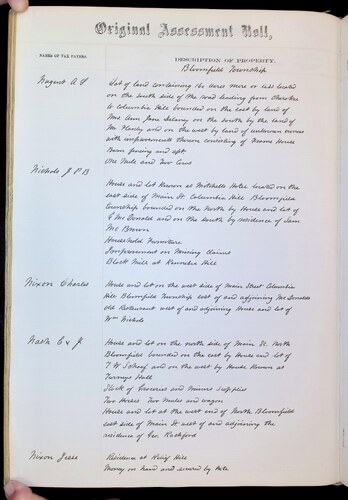 Original Assessment Roll,
NAMES OF TAX PAYERS.
DESCRIPTION OF PROPERTY.
Bloomfield Township
Nugent A F
Lot of land containing 160 acres more or less located
on the south side of the road leading from Cherokee
to Columbia Hill bounded on the east by land of
Mrs. Ann Jane Delaney on the south by the land of
Mr and on the west by land of unknown owner
with improvements thereon consisting of House
Barn fencing and
One Mule and Two Cows
Nichols J P B
House and Lot Known as Mitchells Hotel located on the
east side of Main St. Columbia Hill Bloomfield
Township bounded on the North by House and lot of
Mc Donald and on the south by residence of Sam
Mc Brown
Household Furniture
Improvement on Mining claims
Block Mill at Kennebec Hill
Nixon Charles
House and lot on the west side of Main Street Columbia
Hill Bloomfield Township east of and adjoining Mc Donalds
old Restaurant west of and adjoining House and lot of
Wm Nichols
Nash C & J
House and lot on the north side of Main St. North
Bloomfield bounded on the east by House and lot of
T W and on the west by House Known as
Turneys Hall
Stock of Groceries and Miners Supplies
Two Horses Two Mules and wagon
House and Lot at the west end of North Bloomfield
east side of Main St west of and adjoining the
residence of Geo. Rachford
Nixon Jesse
Residence at Relief Hill
Money on hand and secured by note